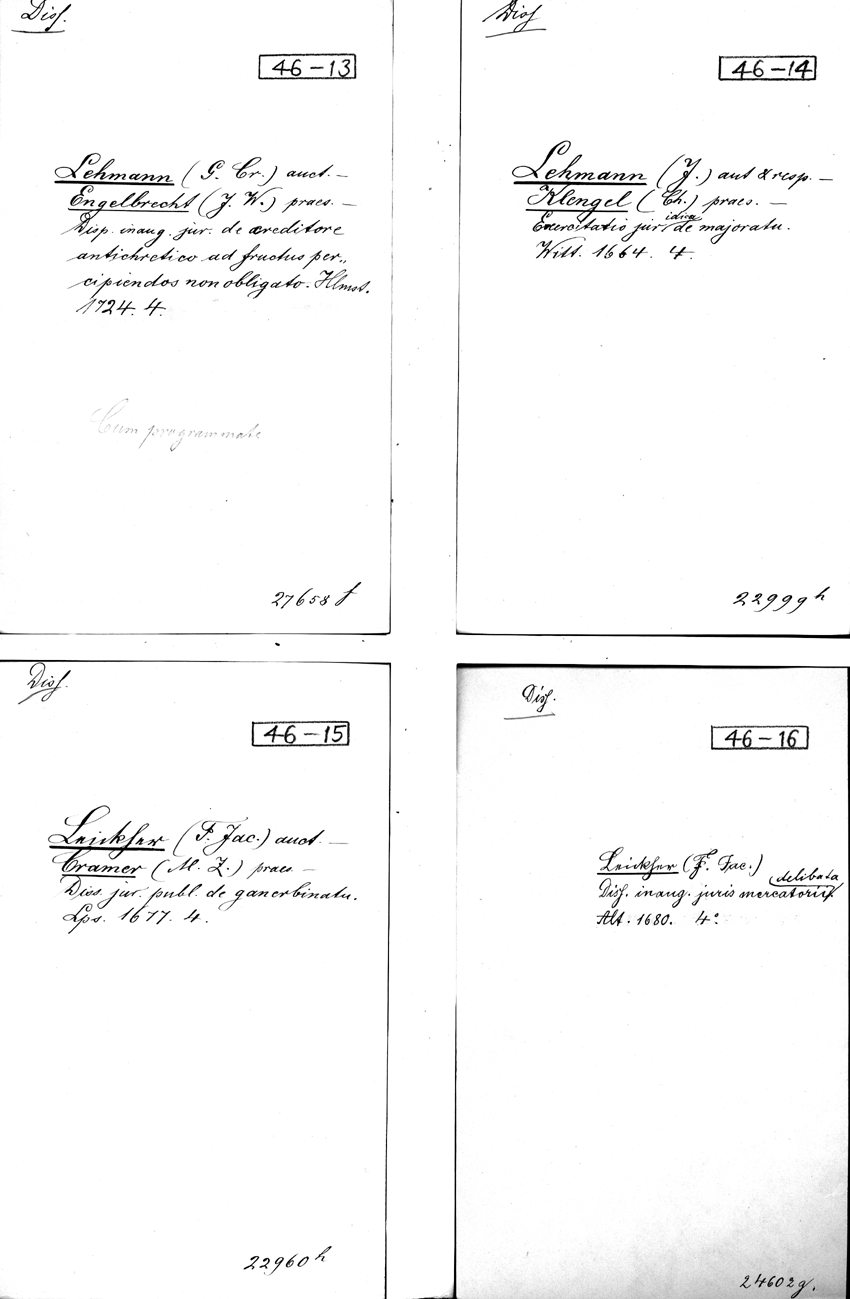 Diss.
46-13
Lehmann (G. Cr.) auct. —
Engelbrecht (J. W.) praes. —
Disp. inaug. jur. de creditore
antichretico ad fructus per„
cipiendos non obligato. Hlmst.
1724. 4.
Cum programmate
27658 f
Diss
46-14
Lehmann (J.) aut & resp. —
Klengel (Ch.) praes. —
Exercitatio juridica de majoratu.
Witt. 1664. 4.
22999 h
Diss.
46-15
Leickher (F. Jac.) auct. —
Cramer (M. Z.) praes —
Diss. jur. publ. de ganerbinatu.
Lps. 1677. 4.
22960 h
Diss.
46-16
Leickher (F. Jac.)
delibata
Diss. inaug. juris mercatorii
Alt. 1680. 4°
24602 g.